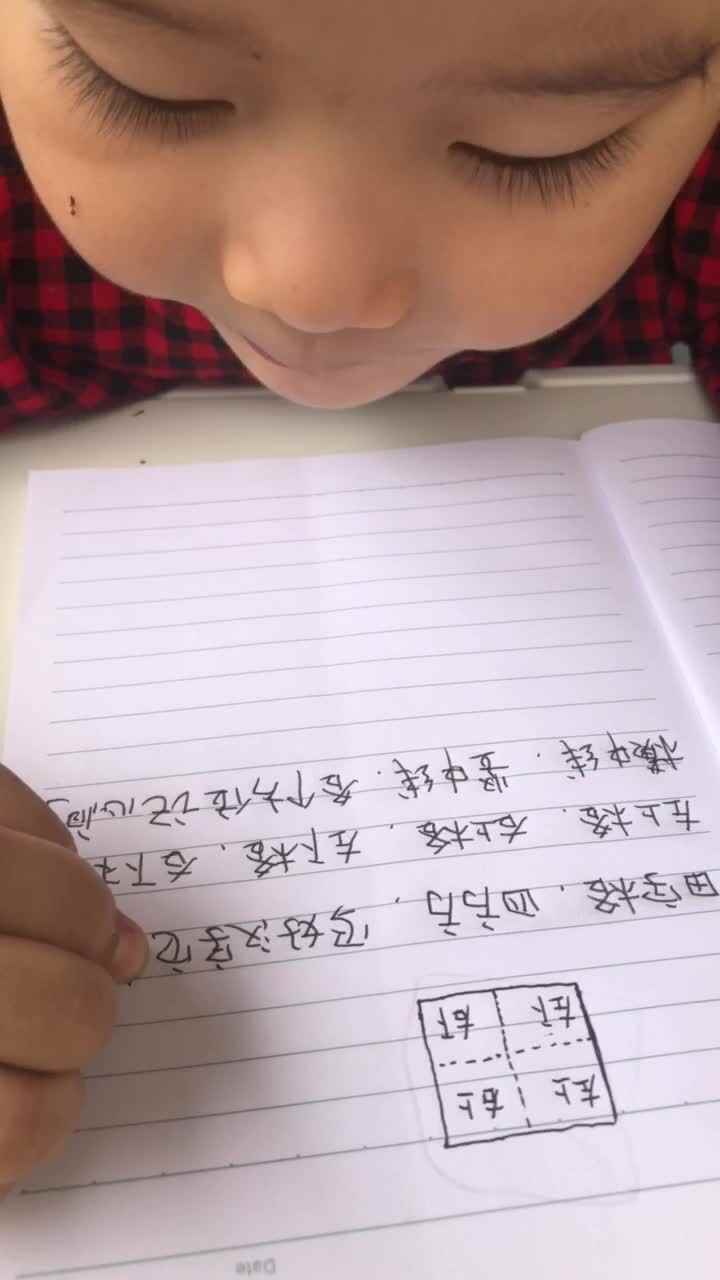 Date
左上 右上
左下 右下
田字格，四方方，写好汉字它
左上格，右上格，左下格，右下
横中线，竖中线，各个方位记心间